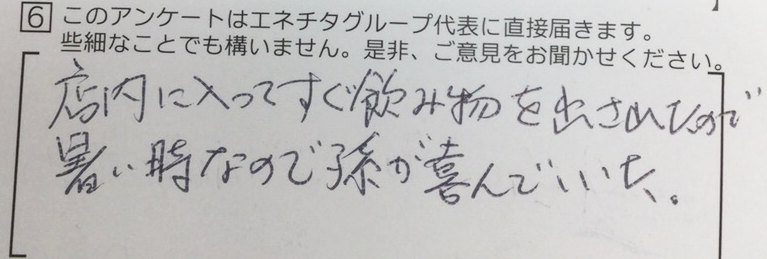 6 このアンケートはエネチタグループ代表に直接届きます。
些細なことでも構いません。是非、ご意見をお聞かせください。
店内に入ってすぐ飲み物を出されたので
暑い時なので孫が喜んでいた。